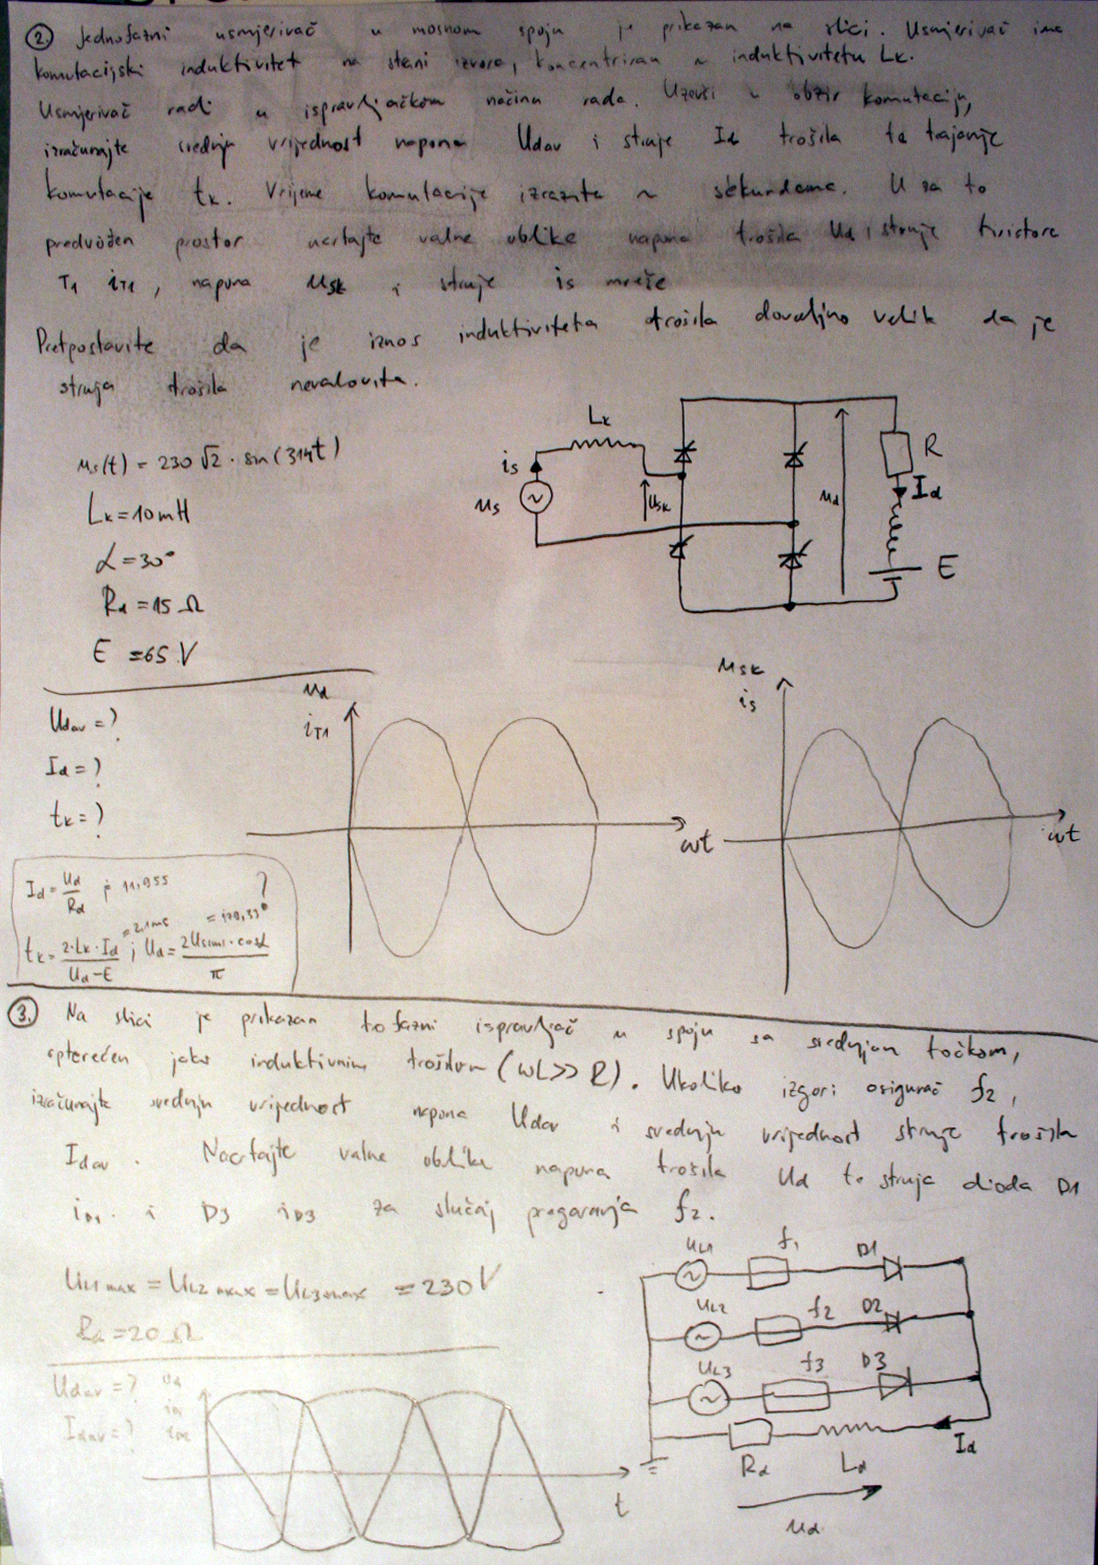 ② Jednofazni usmjerivač u mosnom spoju je prikazan na slici. Usmjerivač ima
komutacijski induktivitet na strani izvora, koncentriran u induktivitetu Lk.
Usmjerivač radi u ispravljačkom načinu rada. Uzevši u obzir komutaciju,
izračunajte srednju vrijednost napona Udav i struje Id trošila te trajanje
komutacije tk. Vrijeme komutacije izrazite u sekundama. U za to
predviđen prostor nacrtajte valne oblike napona trošila Ud i struje tiristora
T1 iT1, napona uSk i struje is mreže
Pretpostavite da je iznos induktiviteta trošila dovoljno velik da je
struja trošila nevalovita.
us(t) = 230 √2 · sin(314t)
Lk = 10 mH
α = 30°
Rd = 15 Ω
E = 65 V
Lk
is
us
usk
ud
R
Id
E
Udav = ?
Id = ?
tk = ?
ud
iT1
ωt
uSk
is
ωt
Id = Ud/Rd ; 11,955 ?
= 2,1ms
tk = 2·Lk·Id/Ud-E ; Ud = 2Usm·cosα/π
③. Na slici je prikazan trofazni ispravljač u spoju sa srednjom točkom,
opterećen jako induktivnim trošilom (ωL>>R). Ukoliko izgori osigurač f2,
izračunajte srednju vrijednost napona Udav i srednju vrijednost struje trošila
Idav. Nacrtajte valne oblike napona trošila ud te struja dioda D1
iD1 i D3 iD3 za slučaj pregaranja f2.
UL1max = UL2max = UL3max = 230 V
Rd = 20 Ω
Udav = ?
Idav = ?
ud
t
uL1 f1 D1
uL2 f2 D2
uL3 f3 D3
Rd Ld Id
ud